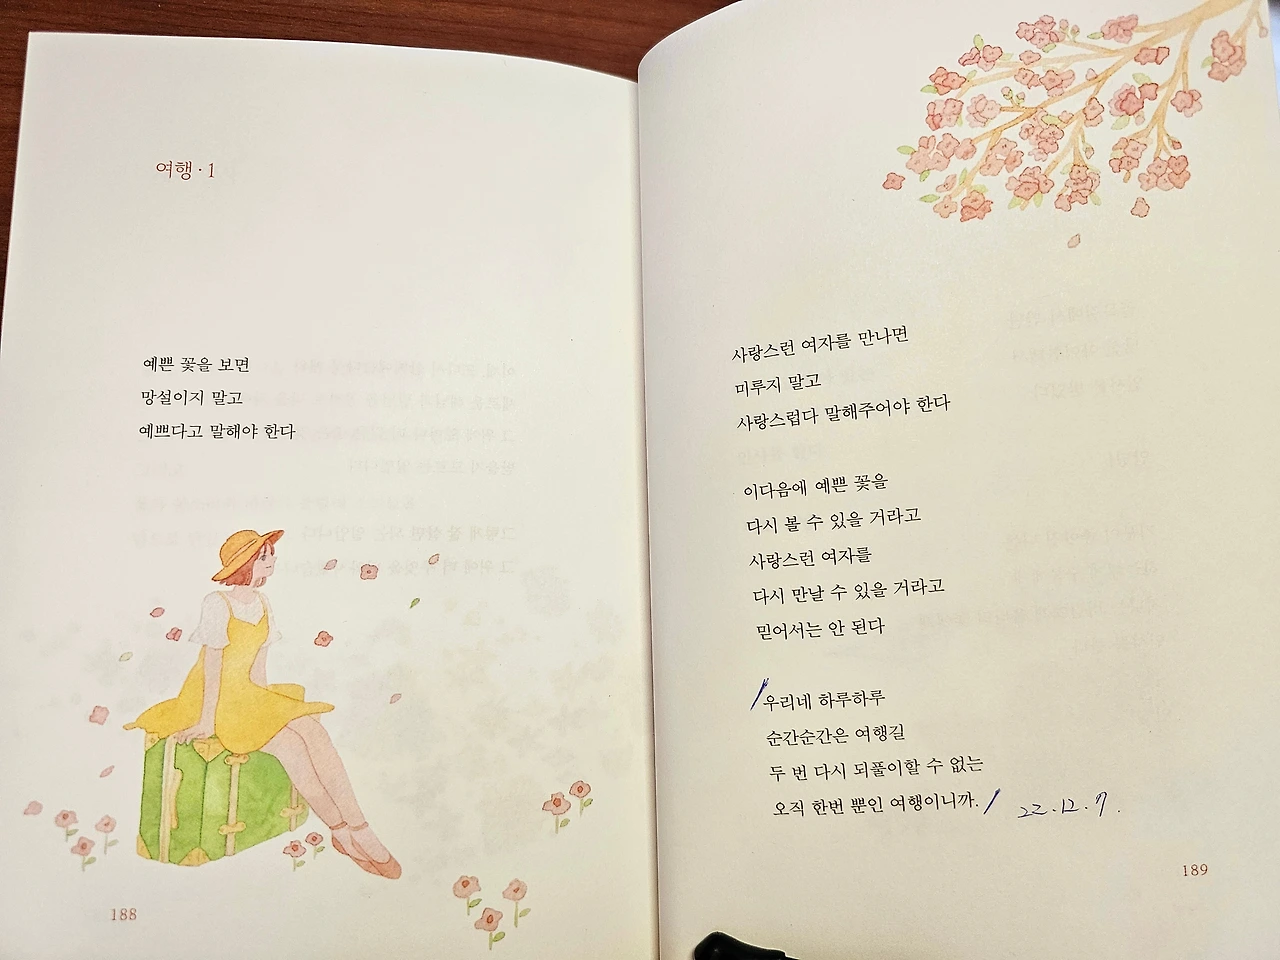 여행·1
예쁜 꽃을 보면
망설이지 말고
예쁘다고 말해야 한다
188
사랑스런 여자를 만나면
미루지 말고
사랑스럽다 말해주어야 한다
이다음에 예쁜 꽃을
다시 볼 수 있을 거라고
사랑스런 여자를
다시 만날 수 있을 거라고
믿어서는 안 된다
우리네 하루하루
순간순간은 여행길
두 번 다시 되풀이할 수 없는
오직 한번 뿐인 여행이니까.
22.12.7.
189